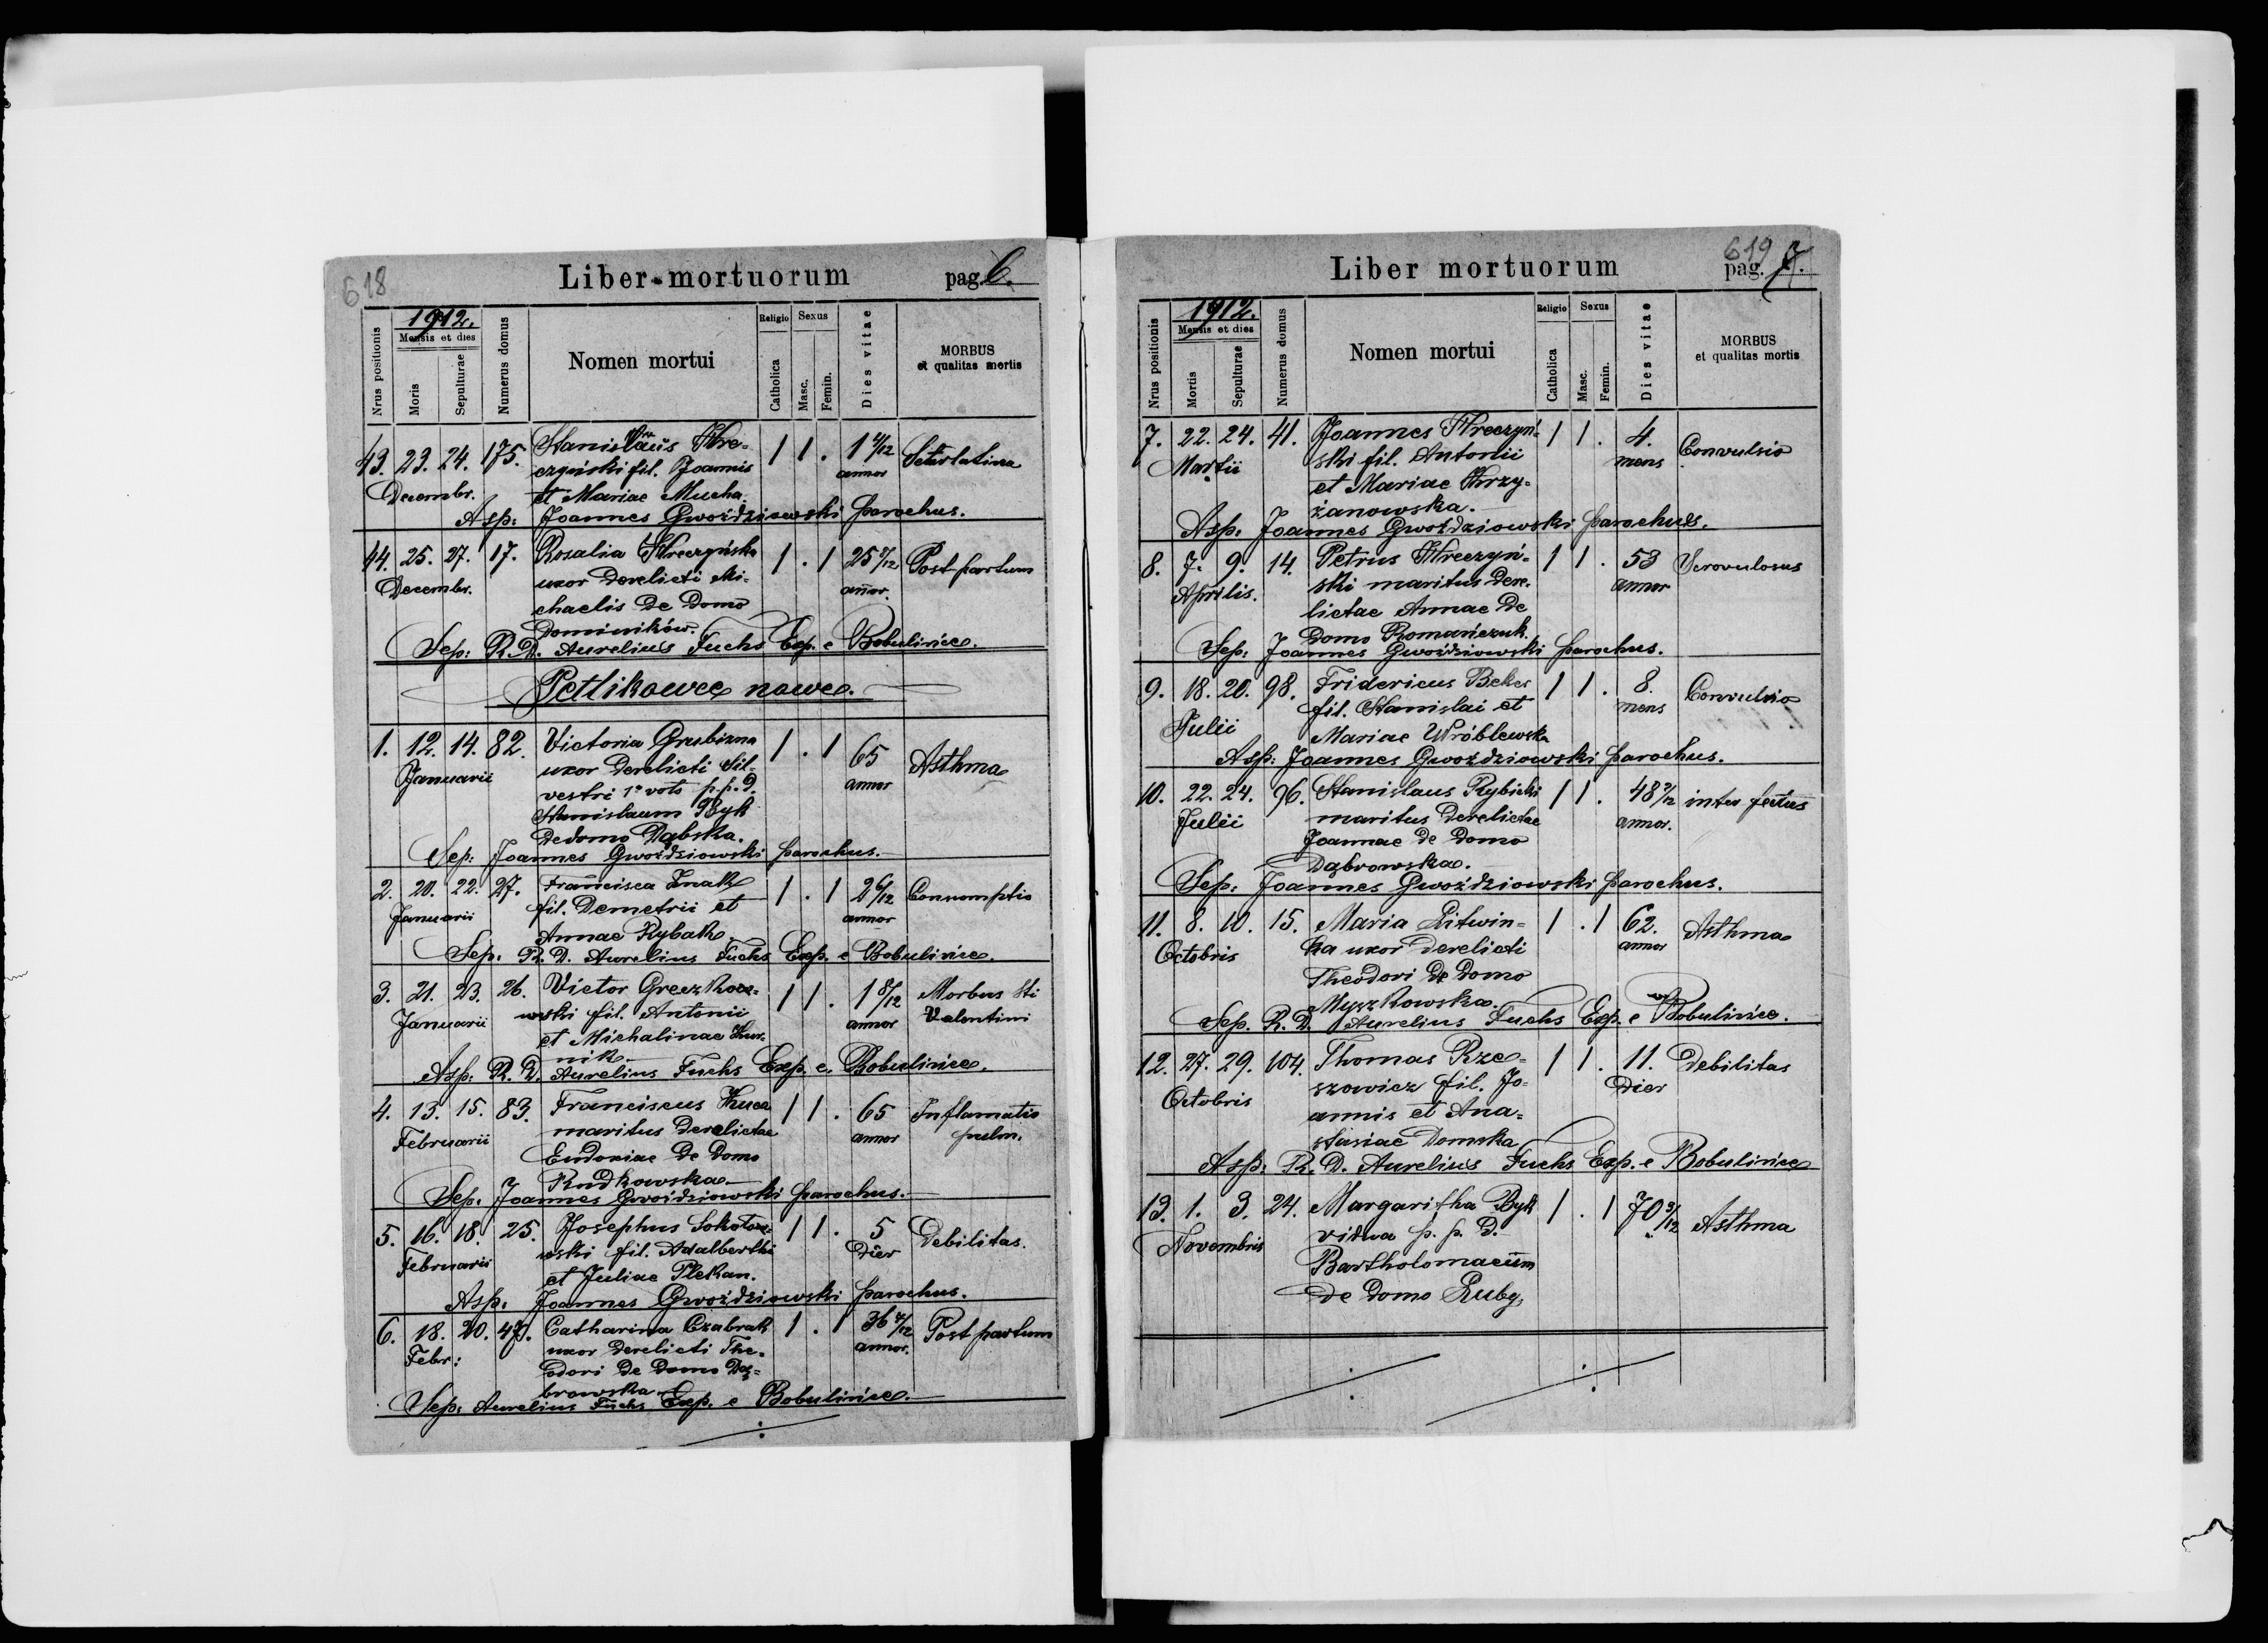 618
Liber mortuorum
pag. 6.
Nrus positionis
1912.
Mensis et dies
Moris
Sepulturae
Numerus domus
Nomen mortui
Religio
Catholica
Sexus
Masc.
Femin.
Dies vitae
MORBUS
et qualitas mortis
43. 23. 24. 175. Stanislaus Hre- 1 1 . 1 4/12
czyński fil. Joannis annor
Decembr. et Mariae Mucha.
Asp: Joannes Gwoździowski parochus.
44. 25. 27. 17. Rosalia Hreczyńska 1 . 1 25 Post partum
Decembr. uxor derelicti Mi- annor.
chaelis de domo
Dominików.
Sep: R. D. Aurelius Fuchs Exp. e Bobulińce.
Petlikowce nowe.
1. 12. 14. 82. Victoria Grubizna 1 . 1 65 Asthma
Januarii uxor derelicti Sil- annor
vestri 1º voto p. p. D.
Stanislaum Byk
de domo Dąbska.
Sep: Joannes Gwoździowski parochus.
2. 20. 22. 27. Francisca Znak 1 . 1 2 6/12 Consomptio
Januarii fil. Demetrii et annor
Annae Rybak.
Sep. R. D. Aurelius Fuchs Exp. e Bobulińce.
3. 21. 23. 26. Victor Greczkow- 1 1 . 1 8/12 Morbus Sti
Januarii wski fil. Antonii annor Valentini
et Michalinae
nik.
Asp: R. D. Aurelius Fuchs Exp. e. Bobulińce.
4. 13. 15. 83. Franciscus 1 1 . 65 Inflamatio
Februarii maritus derelictae annor pulm.
Eudoxiae de domo
Rudkowska.
Sep. Joannes Gwoździowski parochus.
5. 16. 18. 25. Josephus Sokoło- 1 1 . 5 Debilitas.
Februarii wski fil. Adalberthi dier
et Juliae Plekan.
Asp. Joannes Gwoździowski parochus.
6. 18. 20. 47. Catharina Czabrak 1 . 1 36 Post partum
Febr: uxor derelicti The- annor.
odori de domo Dą-
browska
Sep: Aurelius Fuchs Exp. e Bobulińce.
619
Liber mortuorum
pag. 7.
Nrus positionis
1912.
Mensis et dies
Mortis
Sepulturae
Numerus domus
Nomen mortui
Religio
Catholica
Sexus
Masc.
Femin.
Dies vitae
MORBUS
et qualitas mortis
7. 22. 24. 41. Joannes Hreczyń- 1 1 . 4. Convulsio
Martii ski fil. Antonii mens
et Mariae Krzy-
żanowska.
Asp. Joannes Gwoździowski parochus.
8. 7. 9. 14. Petrus Hreczyń- 1 1 . 53
Aprilis. ski maritus dere- annor
lictae Annae de
domo Romańczuk.
Sep: Joannes Gwoździowski parochus.
9. 18. 20. 98. Fridericus Bekes 1 1 . 8. Convulsio
Julii fil. Stanislai et mens
Mariae Wróblewska
Asp: Joannes Gwoździowski parochus.
10. 22. 24. 96. Stanislaus Rybicki 1 1 . 48 inter fectus
Julii maritus derelictae annor.
Joannae de domo
Dąbrowska.
Sep: Joannes Gwoździowski parochus.
11. 8. 10. 15. Maria Litwin- 1 . 1 62. Asthma
Octobris ka uxor derelicti annor
Theodori de domo
Myszkowska.
Sep. R. D. Aurelius Fuchs Exp. e Bobulińce.
12. 27. 29. 104. Thomas Rze- 1 1 . 11. Debilitas
Octobris szowicz fil. Jo- dier
annis et Ana-
stasiae Domska
Asp: R. D. Aurelius Fuchs Exp. e Bobulińce
13. 1. 3. 24. Margaritha Byk 1 . 1 70 Asthma
Novembris vidua p. p. D.
Bartholomaeum
de domo Luby.